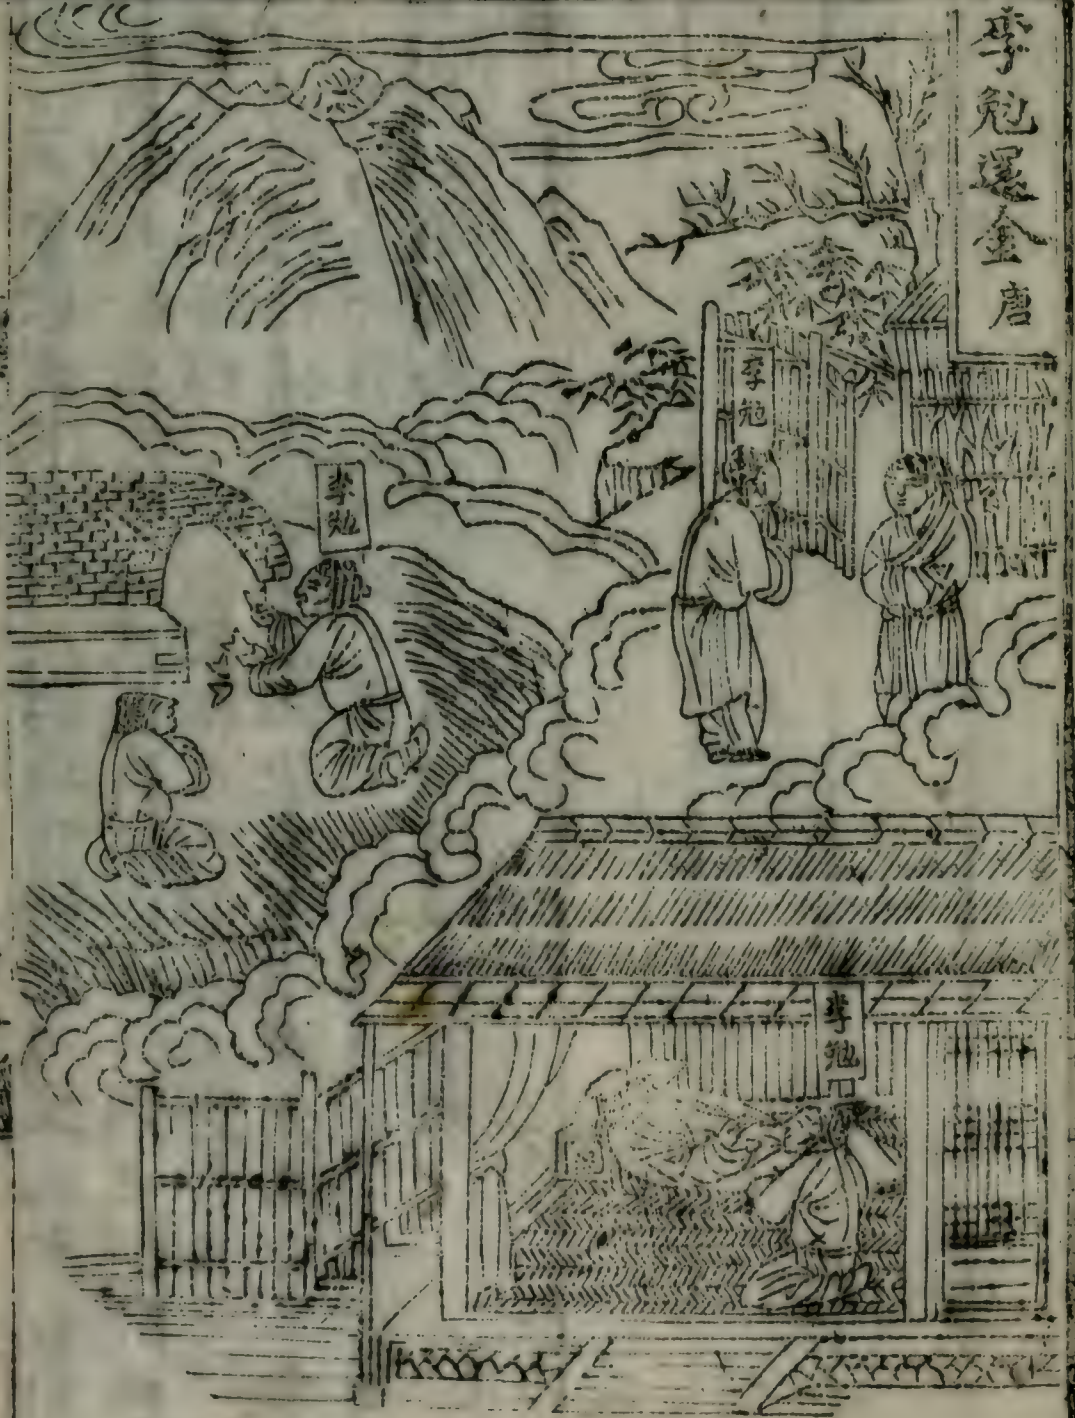 李勉還金 唐
李勉
李勉
李勉